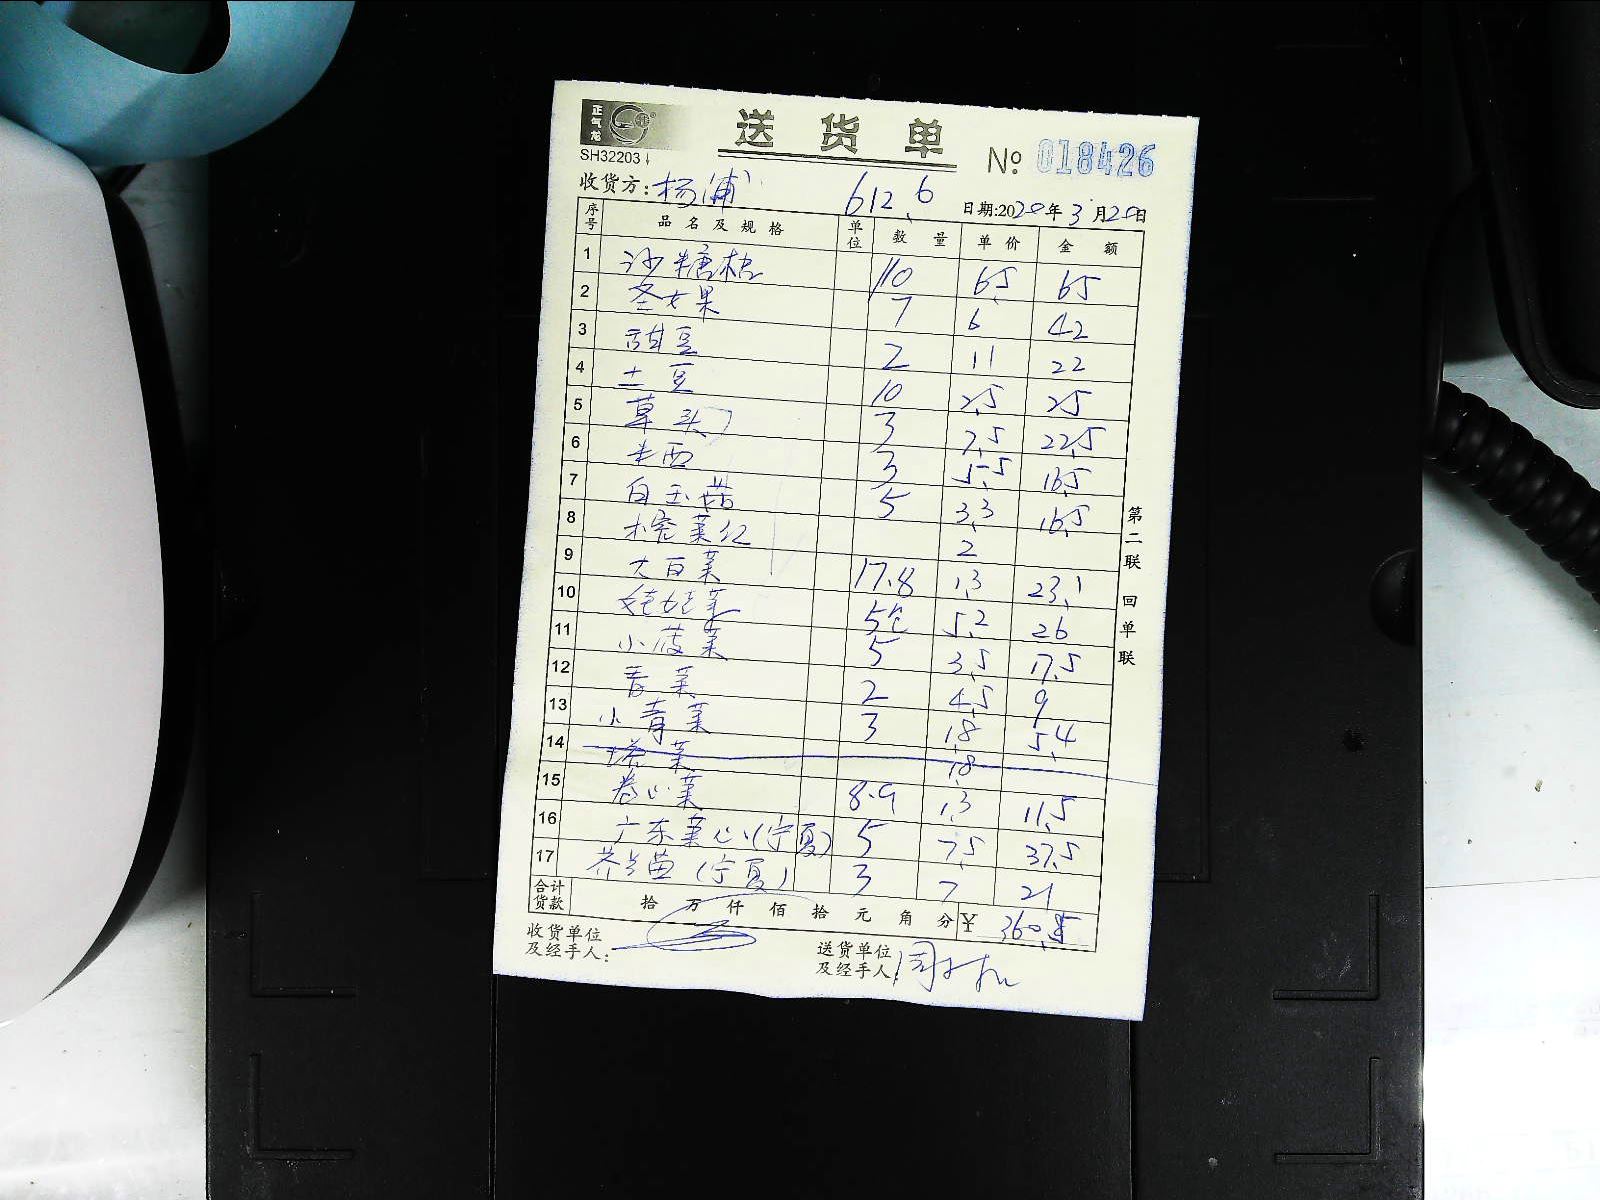 正气龙
送货单
SH32203
No 018426
收货方:杨浦 612.6 日期:2020年3月20日
序号 品名及规格 单位 数量 单价 金额
1 沙糖桔 10 6.5 65
2 圣女果 7 6 42
3 甜豆 2 11 22
4 土豆 10 2.5 25
5 草头 3 7.5 22.5
6 米西 3 5.5 16.5
7 白玉菇 5 3.3 16.5
8 榨菜 2
9 大白菜 17.8 1.3 23.1
10 娃娃菜 5包 5.2 26
11 小菠菜 5 3.5 17.5
12 青菜 2 4.5 9
13 小青菜 3 1.8 5.4
14 塔菜 1.8
15 卷心菜 8.9 1.3 11.5
16 广东菜心(宁夏) 5 7.5 37.5
17 芥兰苗(宁夏) 3 7 21
合计货款 拾 万 仟 佰 拾 元 角 分 ¥ 360.5
收货单位及经手人:
送货单位及经手人:
第二联 回单联